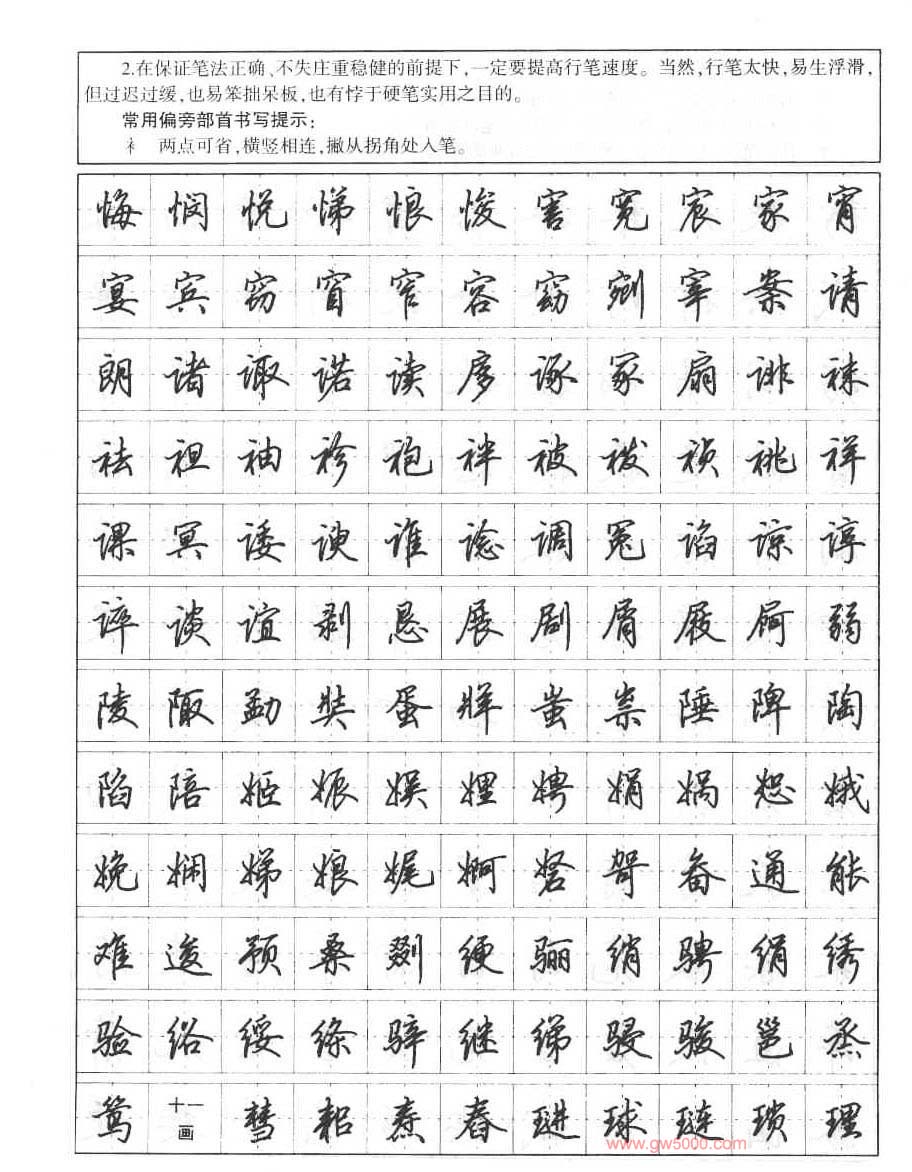 2.在保证笔法正确、不失庄重稳健的前提下,一定要提高行笔速度。当然,行笔太快,易生浮滑,
但过迟过缓,也易笨拙呆板,也有悖于硬笔实用之目的。
常用偏旁部首书写提示:
衤 两点可省,横竖相连,撇从拐角处入笔。
悔 悯 悦 悌 悢 悛 害 宽 宸 家 宵
宴 宾 窃 窅 窄 容 窈 剜 宰 案 请
朗 诸 诹 诺 读 扅 诼 冢 扇 诽 袜
袪 袒 袖 袗 袍 袢 被 袯 祯 祧 祥
课 冥 诿 谀 谁 谂 调 冤 谄 谅 谆
谇 谈 谊 剥 恳 展 剧 屑 屐 屙 弱
陵 陬 勐 奘 蛋 牂 蚩 祟 陲 陴 陶
陷 陪 姬 娠 娱 娌 娉 娟 娲 恕 娥
娩 娴 娣 娘 娓 婀 砮 哿 畚 通 能
难 逡 预 桑 剟 绠 骊 绡 骋 绢 绣
验 绤 绥 绦 骍 继 绨 骎 骏 邕 烝
鸶 十一画 彗 耜 焘 舂 琎 球 琏 琐 理
www.gw5000.com